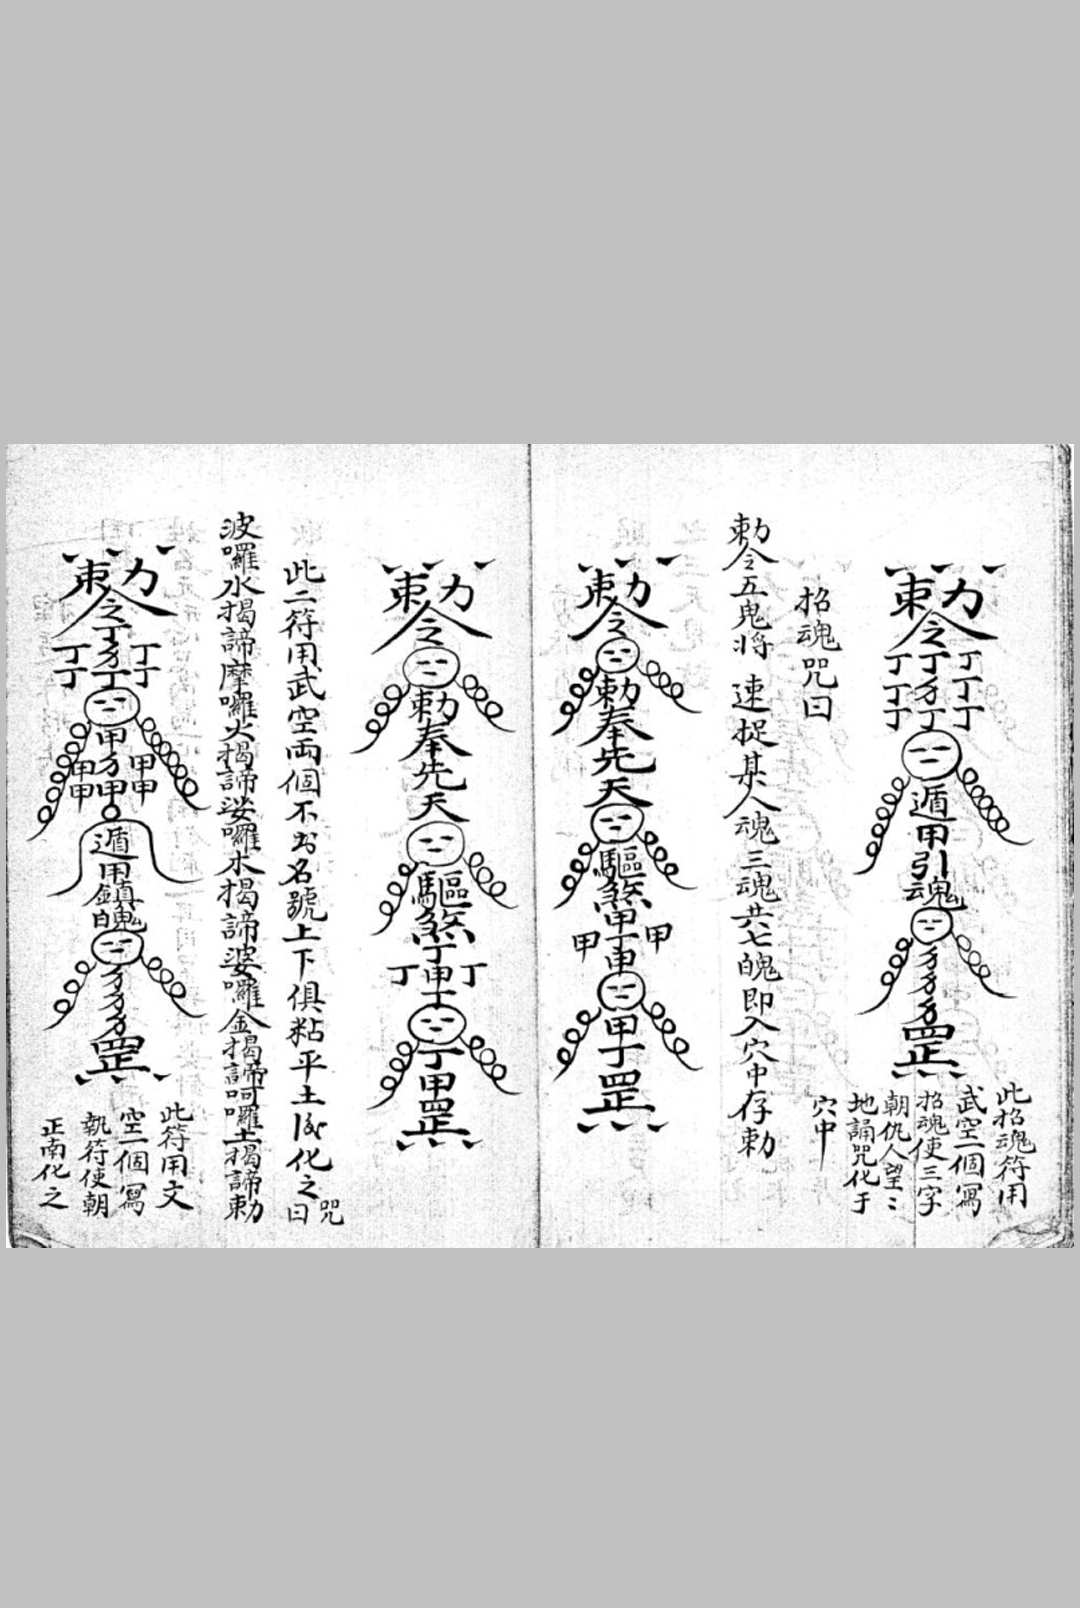 勅令
丁丁丁
丁方丁
丁丁丁
遁甲引魂
方方方
罡
此招魂符用
武空一個寫
招魂使三字
朝仇人望〻
地誦咒化于
穴中
招魂咒曰
勅令五鬼将速捉某人魂三魂共七魄即入穴中存勅
勅令
勅奉先天
驅煞
甲甲甲
甲丁
罡
勅令
勅奉先天
驅煞
丁甲丁
丁甲
罡
此二符用武空両個不出名號上下俱粘平土後化之咒曰
波囉水揭諦摩囉火揭諦娑囉木揭諦婆囉金揭諦呵囉土揭諦勅
勅令
丁丁
丁方丁
丁丁
甲方甲
甲甲
甲甲
遁甲鎮魄
方方方
罡
此符用文
空一個寫
執符使朝
正南化之